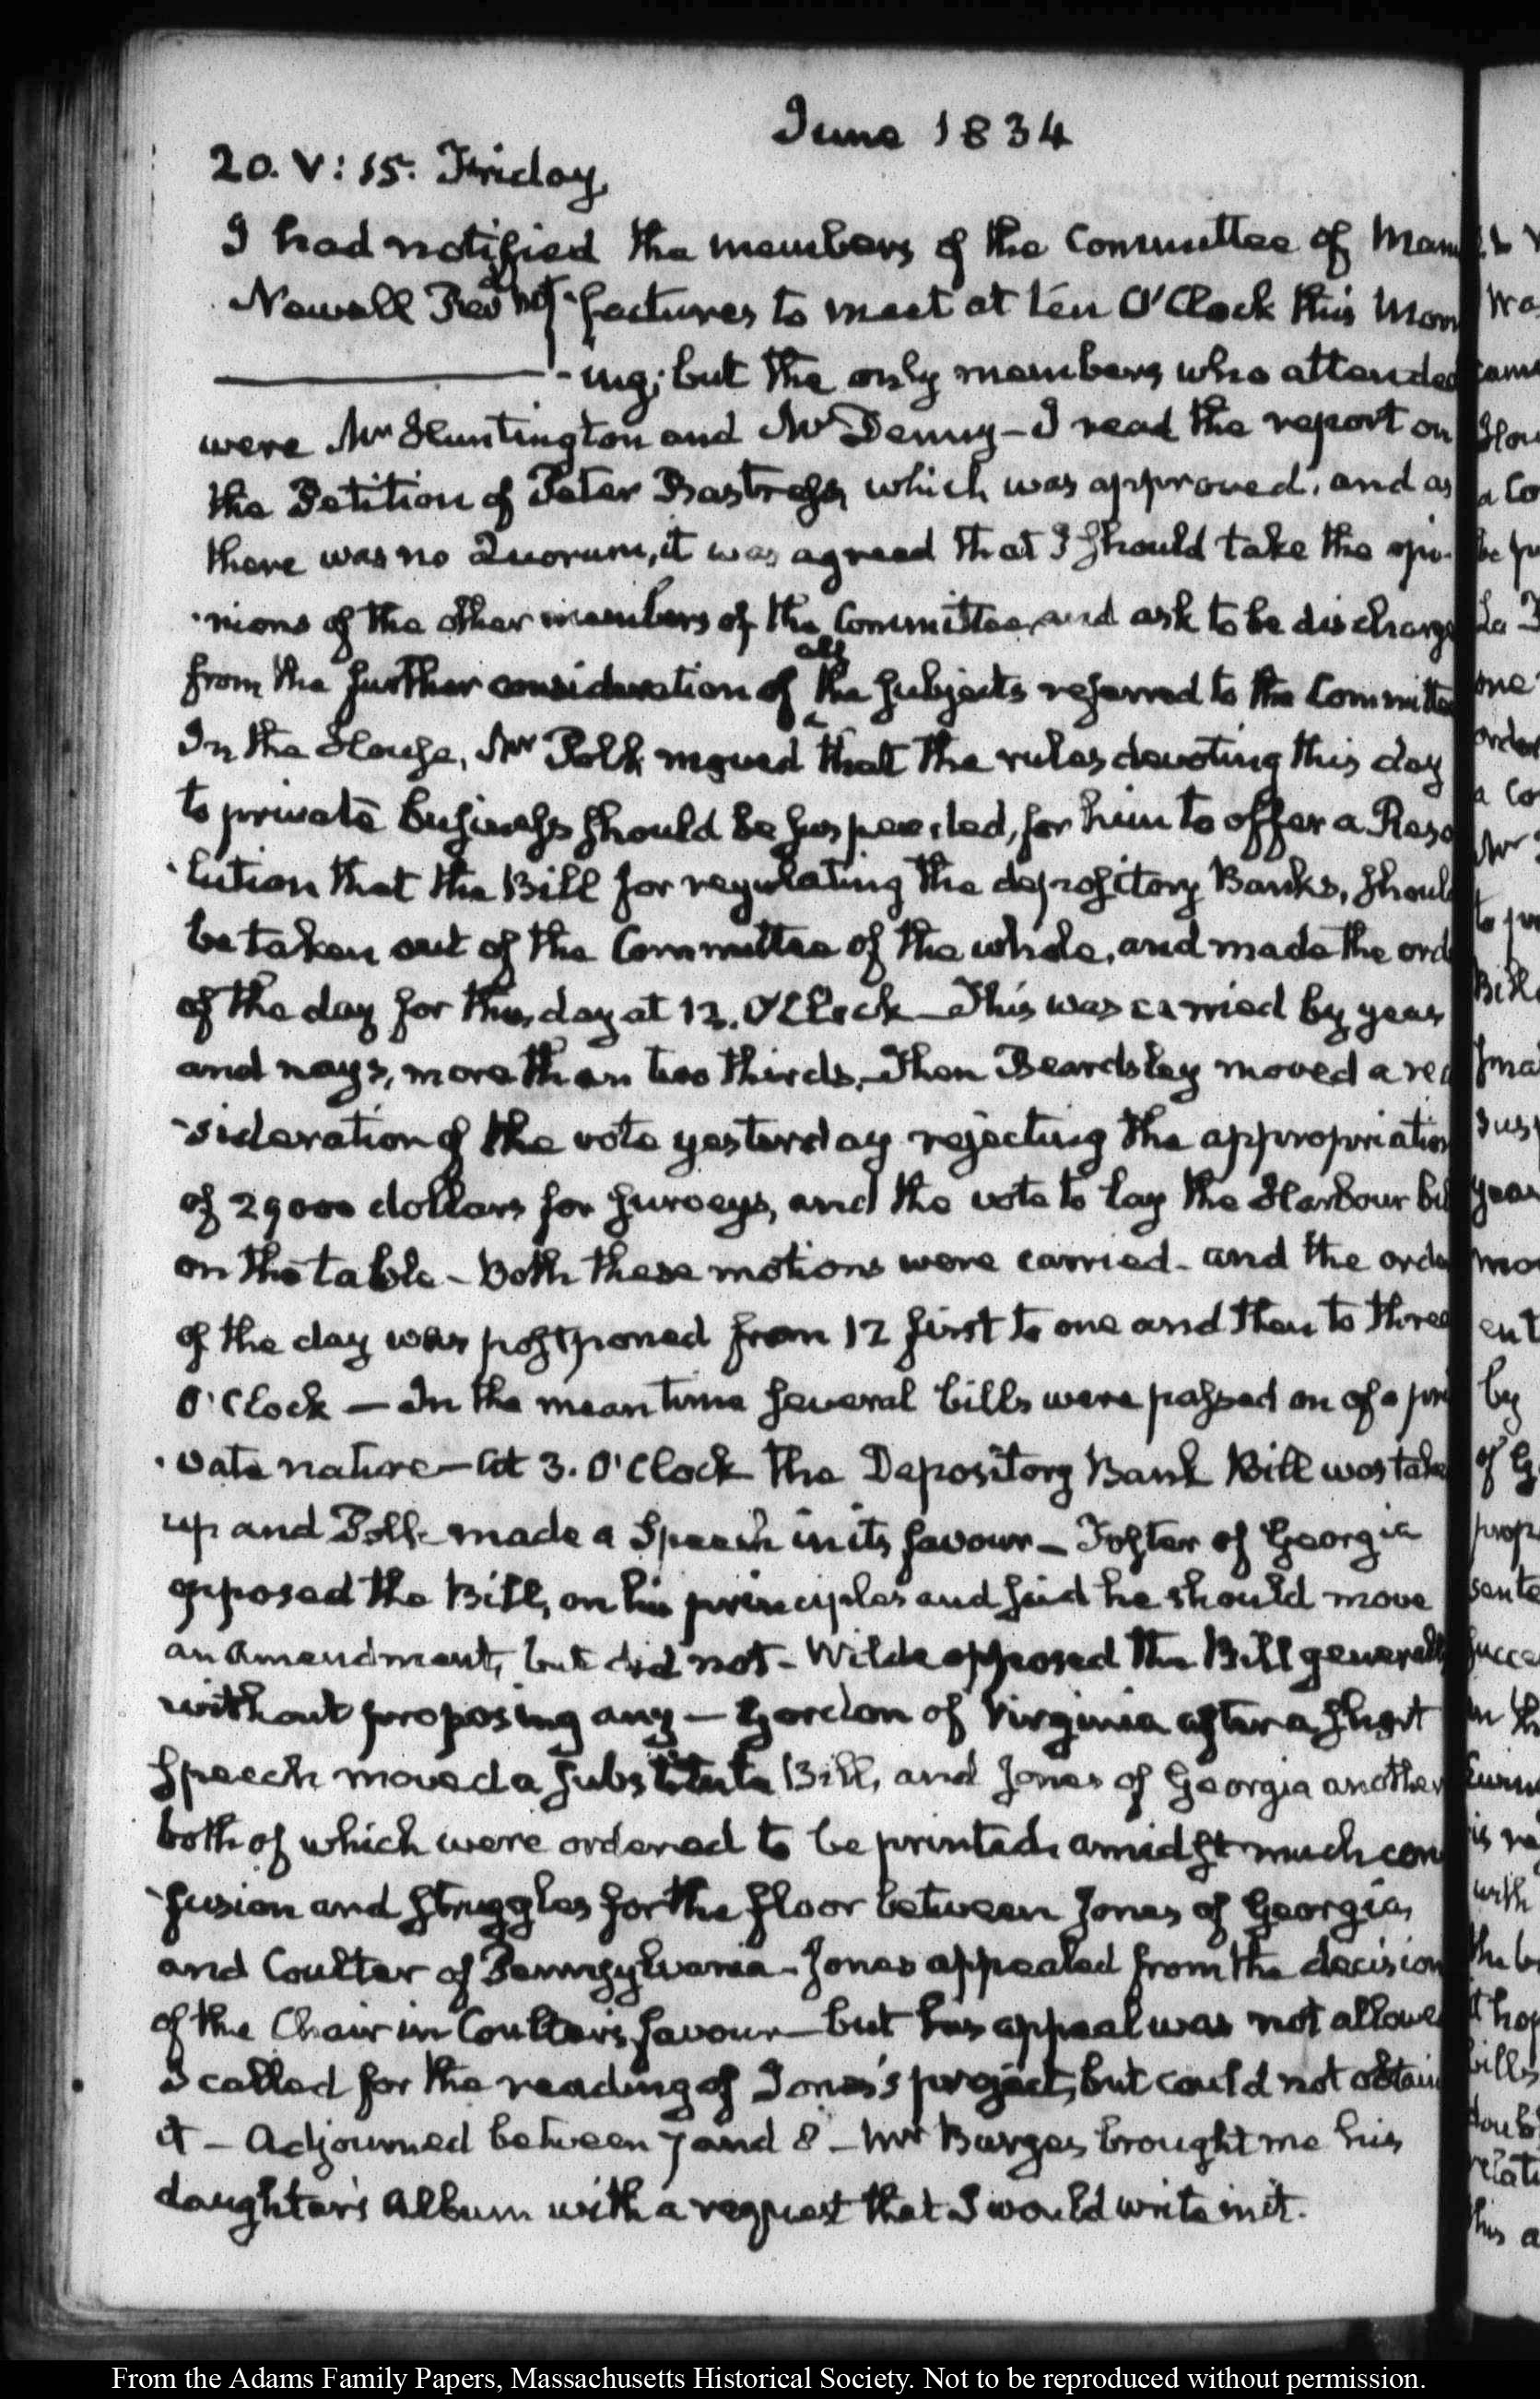 June 1834
20. V: 15. Friday
I had notified the members of the Committee of Manu
Newell Fred -factures to meet at ten O'Clock this Morn
-ing; but the only members who attended
were Mr Huntington and Mr Denny — I read the report on
the Petition of Peter Bastress, which was approved, and as
there was no Quorum, it was agreed that I should take the opi-
-nions of the other members of the Committee, and ask to be discharge
all
from the further consideration of the subjects referred to the Committee
In the House, Mr Polk moved that the rules devoting this day
to private business should be suspended, for him to offer a Reso
-lution that the Bill for regulating the depository Banks, should
be taken out of the Committee of the whole, and made the orde
of the day for this day at 12. O'Clock — This was carried by yeas
and nays, more than two thirds. Then Beardsley moved a rec
-sideration of the vote yesterday rejecting the appropriation
of 29000 dollars for surveys, and the vote to lay the Harbour bil
on the table — Both these motions were carried — and the orde
of the day was postponed from 12 first to one and then to three
O'Clock — In the mean time several bills were passed on of a pri
-vate nature — At 3. O'Clock the Depository Bank Bill was take
up and Polk made a Speech in its favour — Foster of Georgia
opposed the Bill, on his principles and said he should move
an Amendment, but did not — Wilde opposed the Bill generally
without proposing any — Gordon of Virginia after a short
Speech moved a substitute Bill, and Jones of Georgia another
both of which were ordered to be printed, amidst much con
-fusion and struggles for the floor between Jones of Georgia,
and Coulter of Pennsylvania — Jones appealed from the decision
of the Chair in Coulter's favour — but his appeal was not allowe
I called for the reading of Jones's project, but could not obtain
it — Adjourned between 7 and 8 — Mr Burges brought me his
daughter's Album with a request that I would write in it.
From the Adams Family Papers, Massachusetts Historical Society. Not to be reproduced without permission.